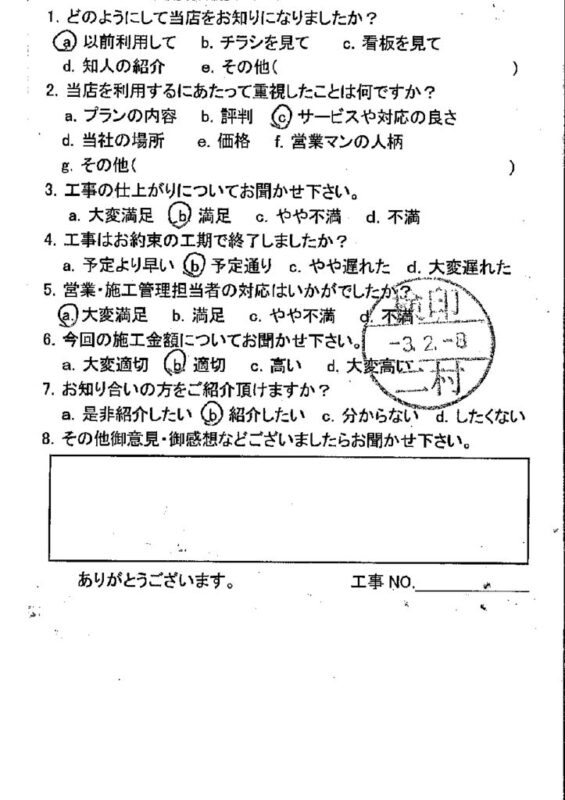 1. どのようにして当店をお知りになりましたか？
a 以前利用して b. チラシを見て c. 看板を見て
d. 知人の紹介 e. その他( )
2. 当店を利用するにあたって重視したことは何ですか？
a. プランの内容 b. 評判 c サービスや対応の良さ
d. 当社の場所 e. 価格 f. 営業マンの人柄
g. その他( )
3. 工事の仕上がりについてお聞かせ下さい。
a. 大変満足 b 満足 c. やや不満 d. 不満
4. 工事はお約束の工期で終了しましたか？
a. 予定より早い b 予定通り c. やや遅れた d. 大変遅れた
5. 営業・施工管理担当者の対応はいかがでしたか？
a. 大変満足 b. 満足 c. やや不満 d. 不満
検印
-3.2.-8
二村
6. 今回の施工金額についてお聞かせ下さい。
a. 大変適切 b 適切 c. 高い d. 大変高い
7. お知り合いの方をご紹介頂けますか？
a. 是非紹介したい b 紹介したい c. 分からない d. したくない
8. その他御意見・御感想などございましたらお聞かせ下さい。
ありがとうございます。 工事 NO.